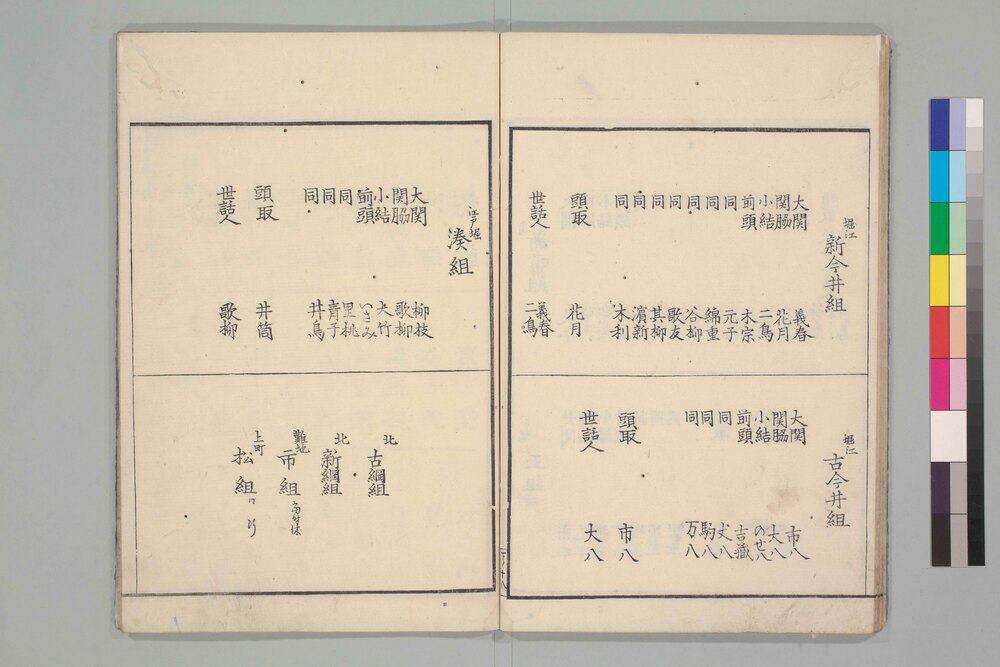 堀江
新今井組
大関 義春
関脇 花月
小結 二鳥
前頭 木宗
同 元子
同 綿重
同 谷柳
同 歌友
同 其柳
同 濱新
同 木利
頭取 花月
世話人 義春
二鳥
堀江
古今井組
大関 市八
関脇 大八
小結 のせ八
前頭 吉蔵
同 丈八
同 駒八
同 万八
頭取 市八
世話人 大八
江戸堀
湊組
大関 柳枝
関脇 歌柳
小結 大竹
前頭 いさみ
同 里桃
同 青子
同 井鳥
頭取 井筒
世話人 歌柳
北
古綱組
北
新綱組
難地
市組
上町
松組